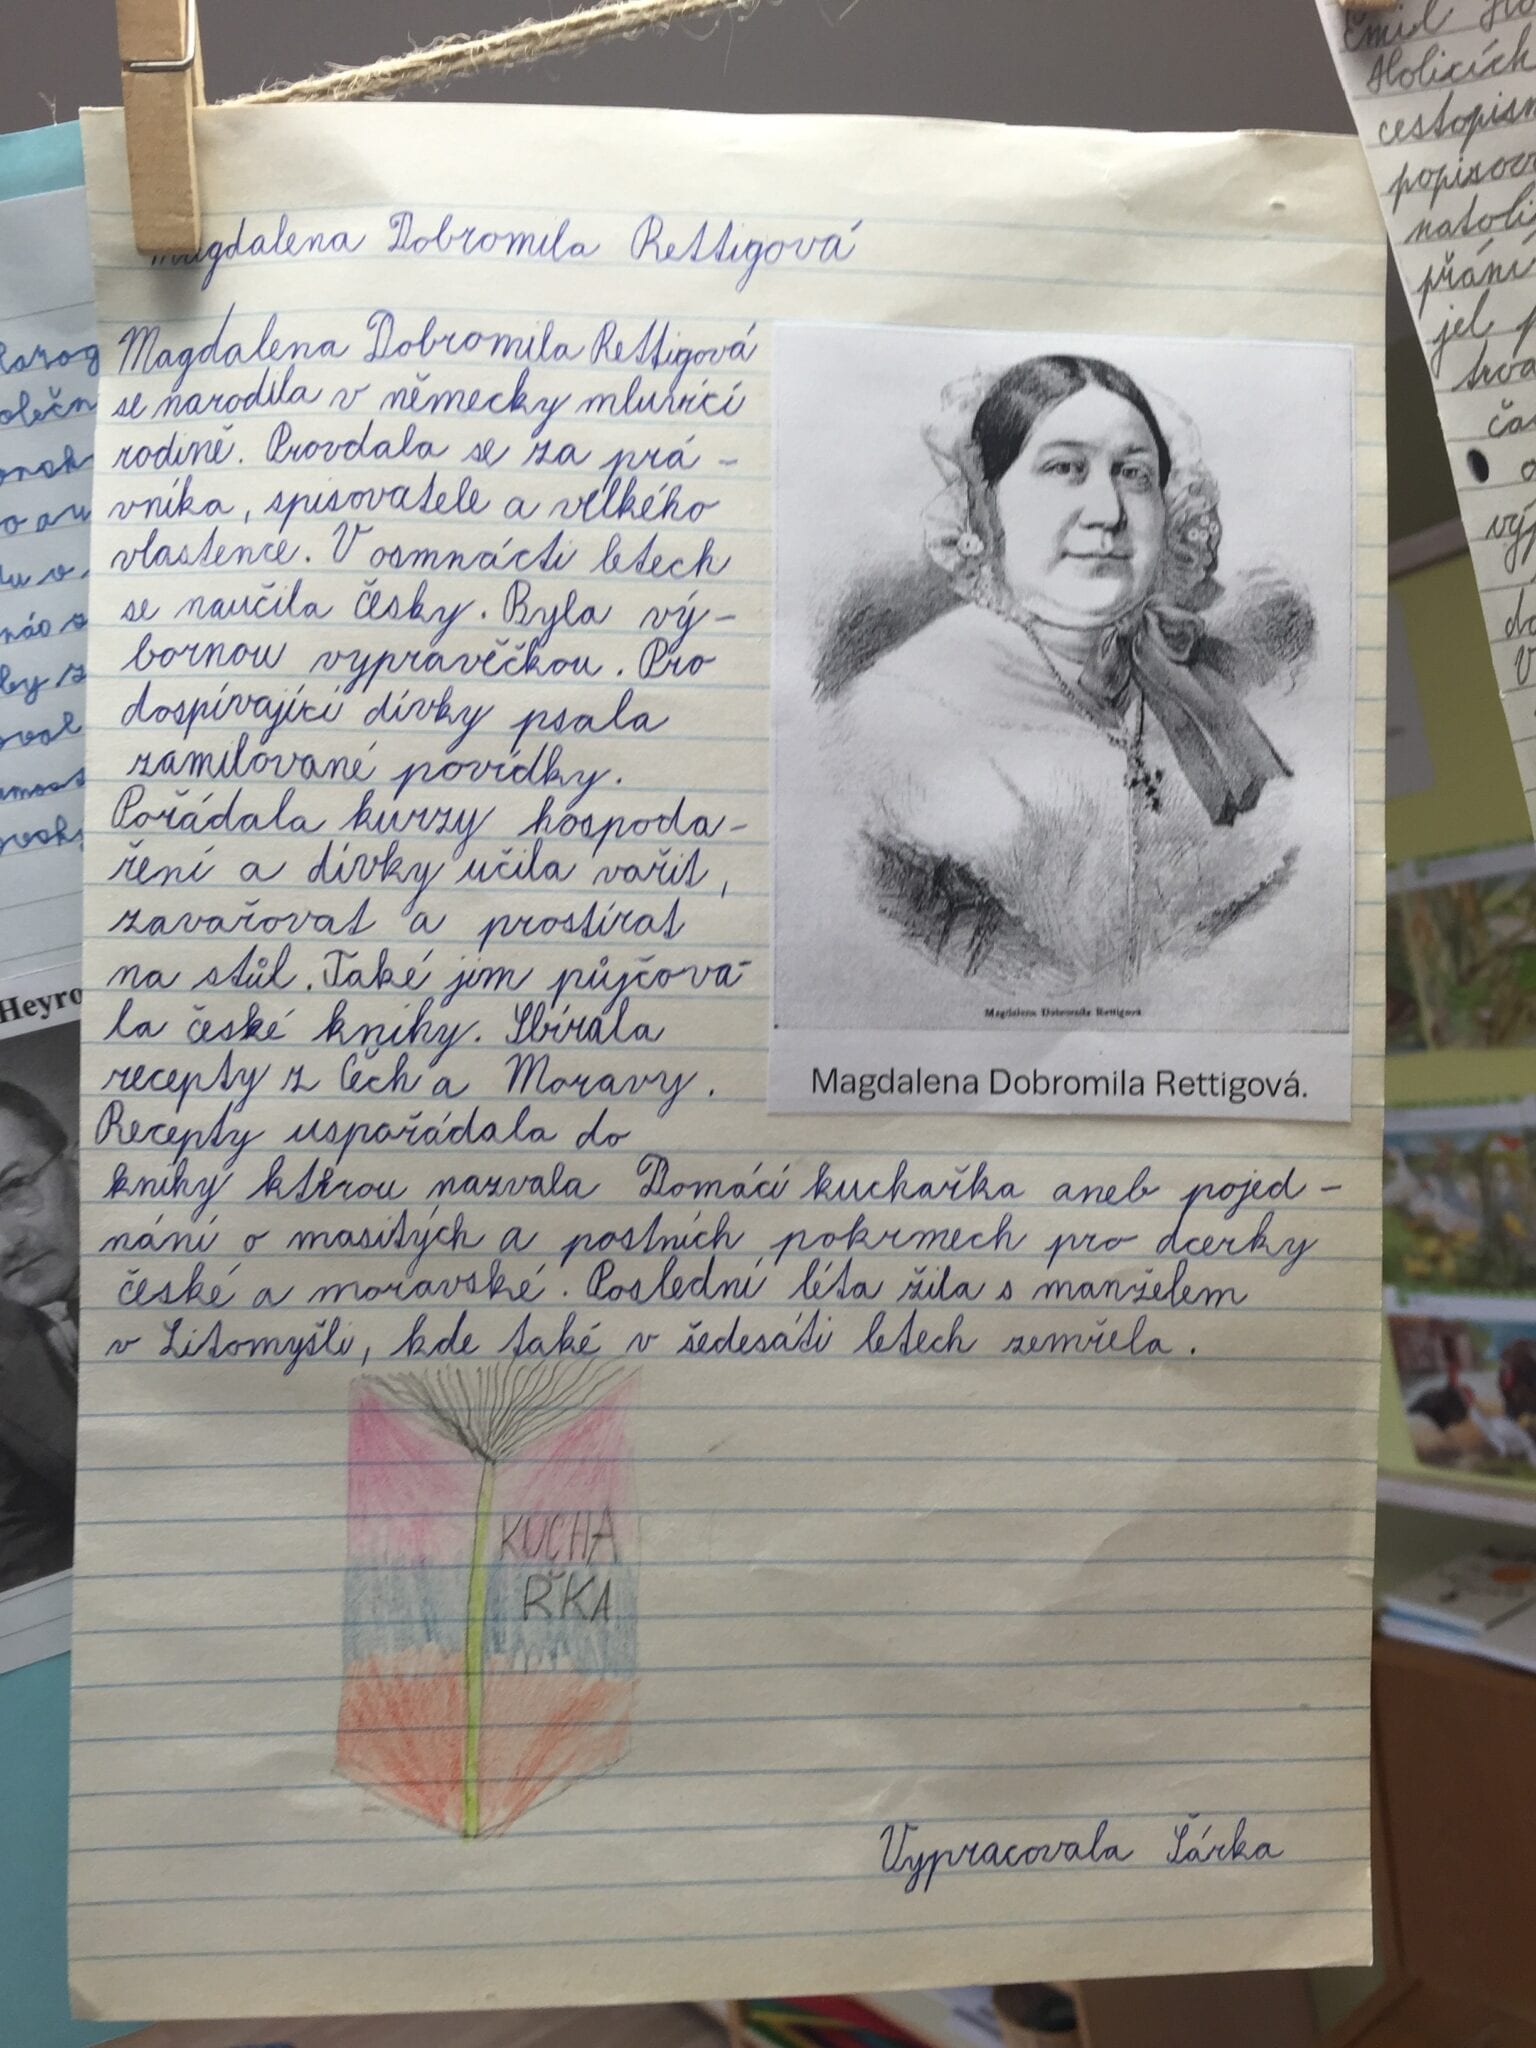 Magdalena Dobromila Rettigová
Magdalena Dobromila Rettigová
se narodila v německy mluvící
rodině. Provdala se za prá-
vníka, spisovatele a velkého
vlastence. V osmnácti letech
se naučila česky. Byla vý-
bornou vypravěčkou. Pro
dospívající dívky psala
zamilované povídky.
Pořádala kurzy hospoda-
ření a dívky učila vařit,
zavařovat a prostírat
na stůl. Také jim půjčova-
la české knihy. Sbírala
recepty z Čech a Moravy.
Recepty uspořádala do
knihy kterou nazvala Domácí kuchařka aneb pojed-
nání o masitých a postních pokrmech pro dcerky
české a moravské. Poslední léta žila s manželem
v Litomyšli, kde také v šedesáti letech zemřela.
Magdalena Dobromila Rettigová
Magdalena Dobromila Rettigová.
KUCHA
ŘKA
Vypracovala Šárka
Heyro
Emil
Holicích
cestopisn
popisov
natoli
přání
jel p
trva